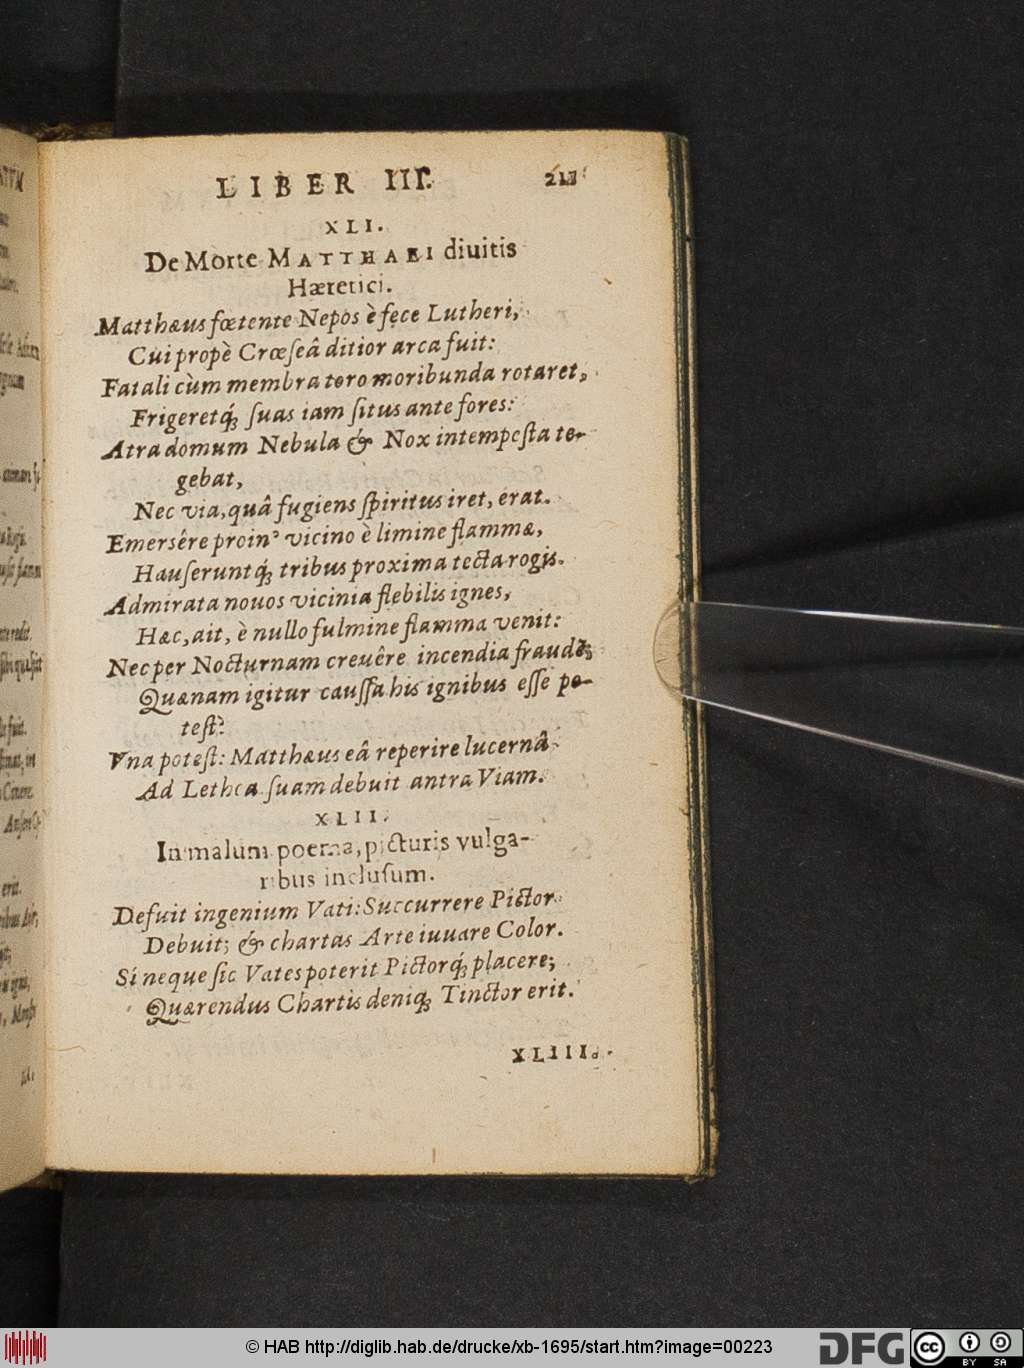 LIBER III.
XLI.
De Morte MATTHAEI diuitis
Hæretici.
Matthæus fœtente Nepos è fęce Lutheri,
Cui propè Crœſeâ ditior arca fuit:
Fatali cùm membra toro moribunda rotaret,
Frigeretq́; ſuas iam ſitus ante fores:
Atra domum Nebula & Nox intempeſta te-
gebat,
Nec via, quâ fugiens ſpiritus iret, erat.
Emersêre proinꝰ vicino è limine flammæ,
Hauſeruntq́; tribus proxima tecta rogis.
Admirata nouos vicinia flebilis ignes,
Hæc, ait, è nullo fulmine flamma venit:
Nec per Nocturnam creuêre incendia fraudẽ;
Quænam igitur cauſſa his ignibus eſſe po-
teſt?
Vna poteſt: Matthæus eâ reperire lucernâ
Ad Lethea ſuam debuit antra Viam.
XLII.
In malum poema, picturis vulga-
ribus incluſum.
Defuit ingenium Vati: Succurrere Pictor
Debuit; & chartas Arte iuuare Color.
Si neque ſic Vates poterit Pictorq́; placere;
Quærendus Chartis deniq́; Tinctor erit.
XLIII.
© HAB http://diglib.hab.de/drucke/xb-1695/start.htm?image=00223
DFG
cc BY SA